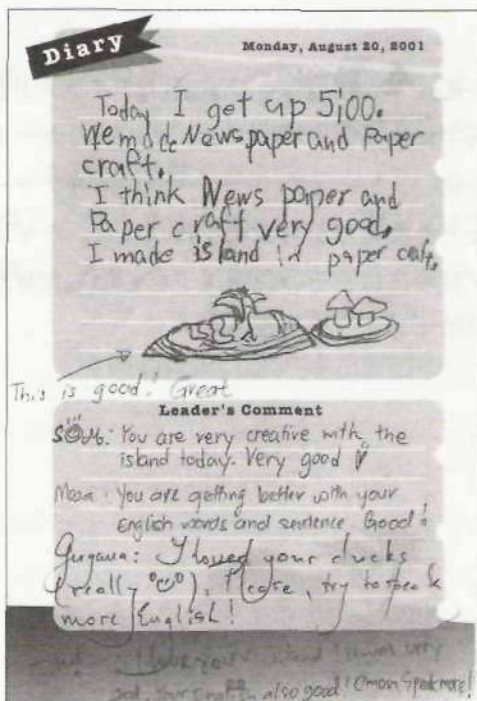 Diary
Monday, August 20, 2001
Today I get up 5:00.
We made News paper and Paper
craft.
I think News paper and
Paper craft very good.
I made island in paper craft.
This is good! Great
Leader's Comment
You are very creative with the
island today. Very good
You are getting better with your
English words and sentence. Good!
Guyana: I loved your ducks
(really). Please, try to speak
more English!
I love your island! It was very
good. Your English also good! C'mon Speak more!